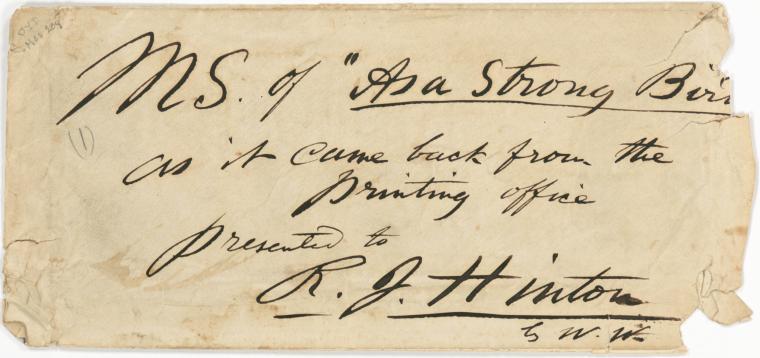 MS. of "As a Strong Bir
(1)
as it came back from the
printing office
presented to
R. J. Hinton
by W. W.